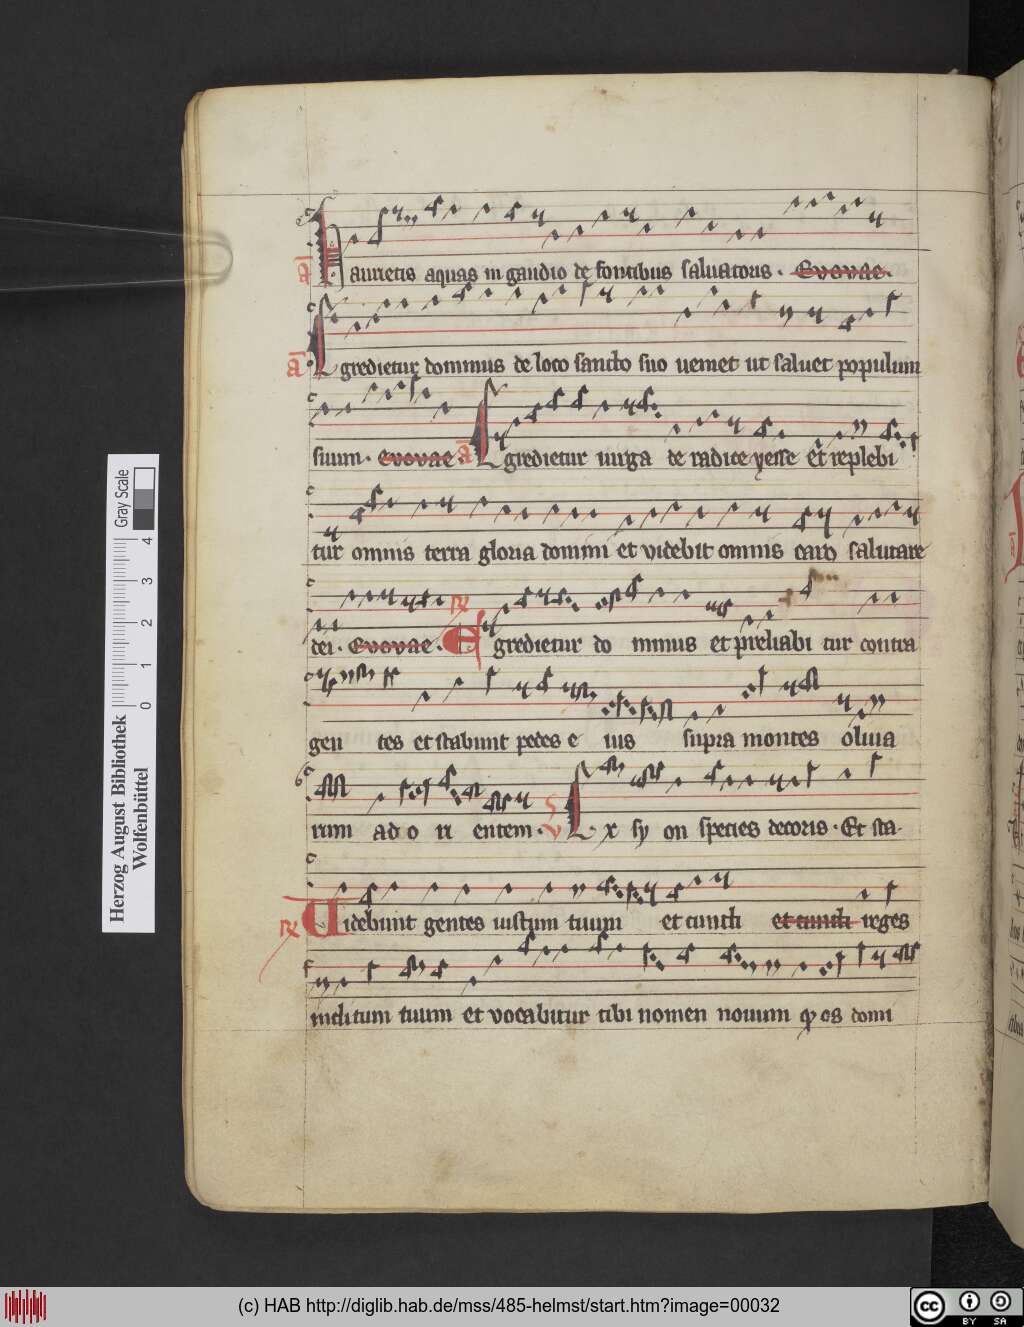 a Haurietis aquas in gaudio de fontibus saluatoris. Euouae.
a Egredietur dominus de loco sancto suo ueniet ut saluet populum
suum. Euouae. a Egredietur uirga de radice yesse et replebi
tur omnis terra gloria domini et videbit omnis caro salutare
dei. Euouae. R Egredietur do minus et preliabi tur contra
gen tes et stabunt pedes e ius supra montes oliua
rum ad o ri entem. V Ex sy on species decoris. Et sta.
R Uidebunt gentes iustum tuum et cuncti et cuncti reges
inclitum tuum et vocabitur tibi nomen nouum qd os domi
Gray Scale
0 1 2 3 4
Herzog August Bibliothek
Wolfenbüttel
(c) HAB http://diglib.hab.de/mss/485-helmst/start.htm?image=00032
cc BY SA